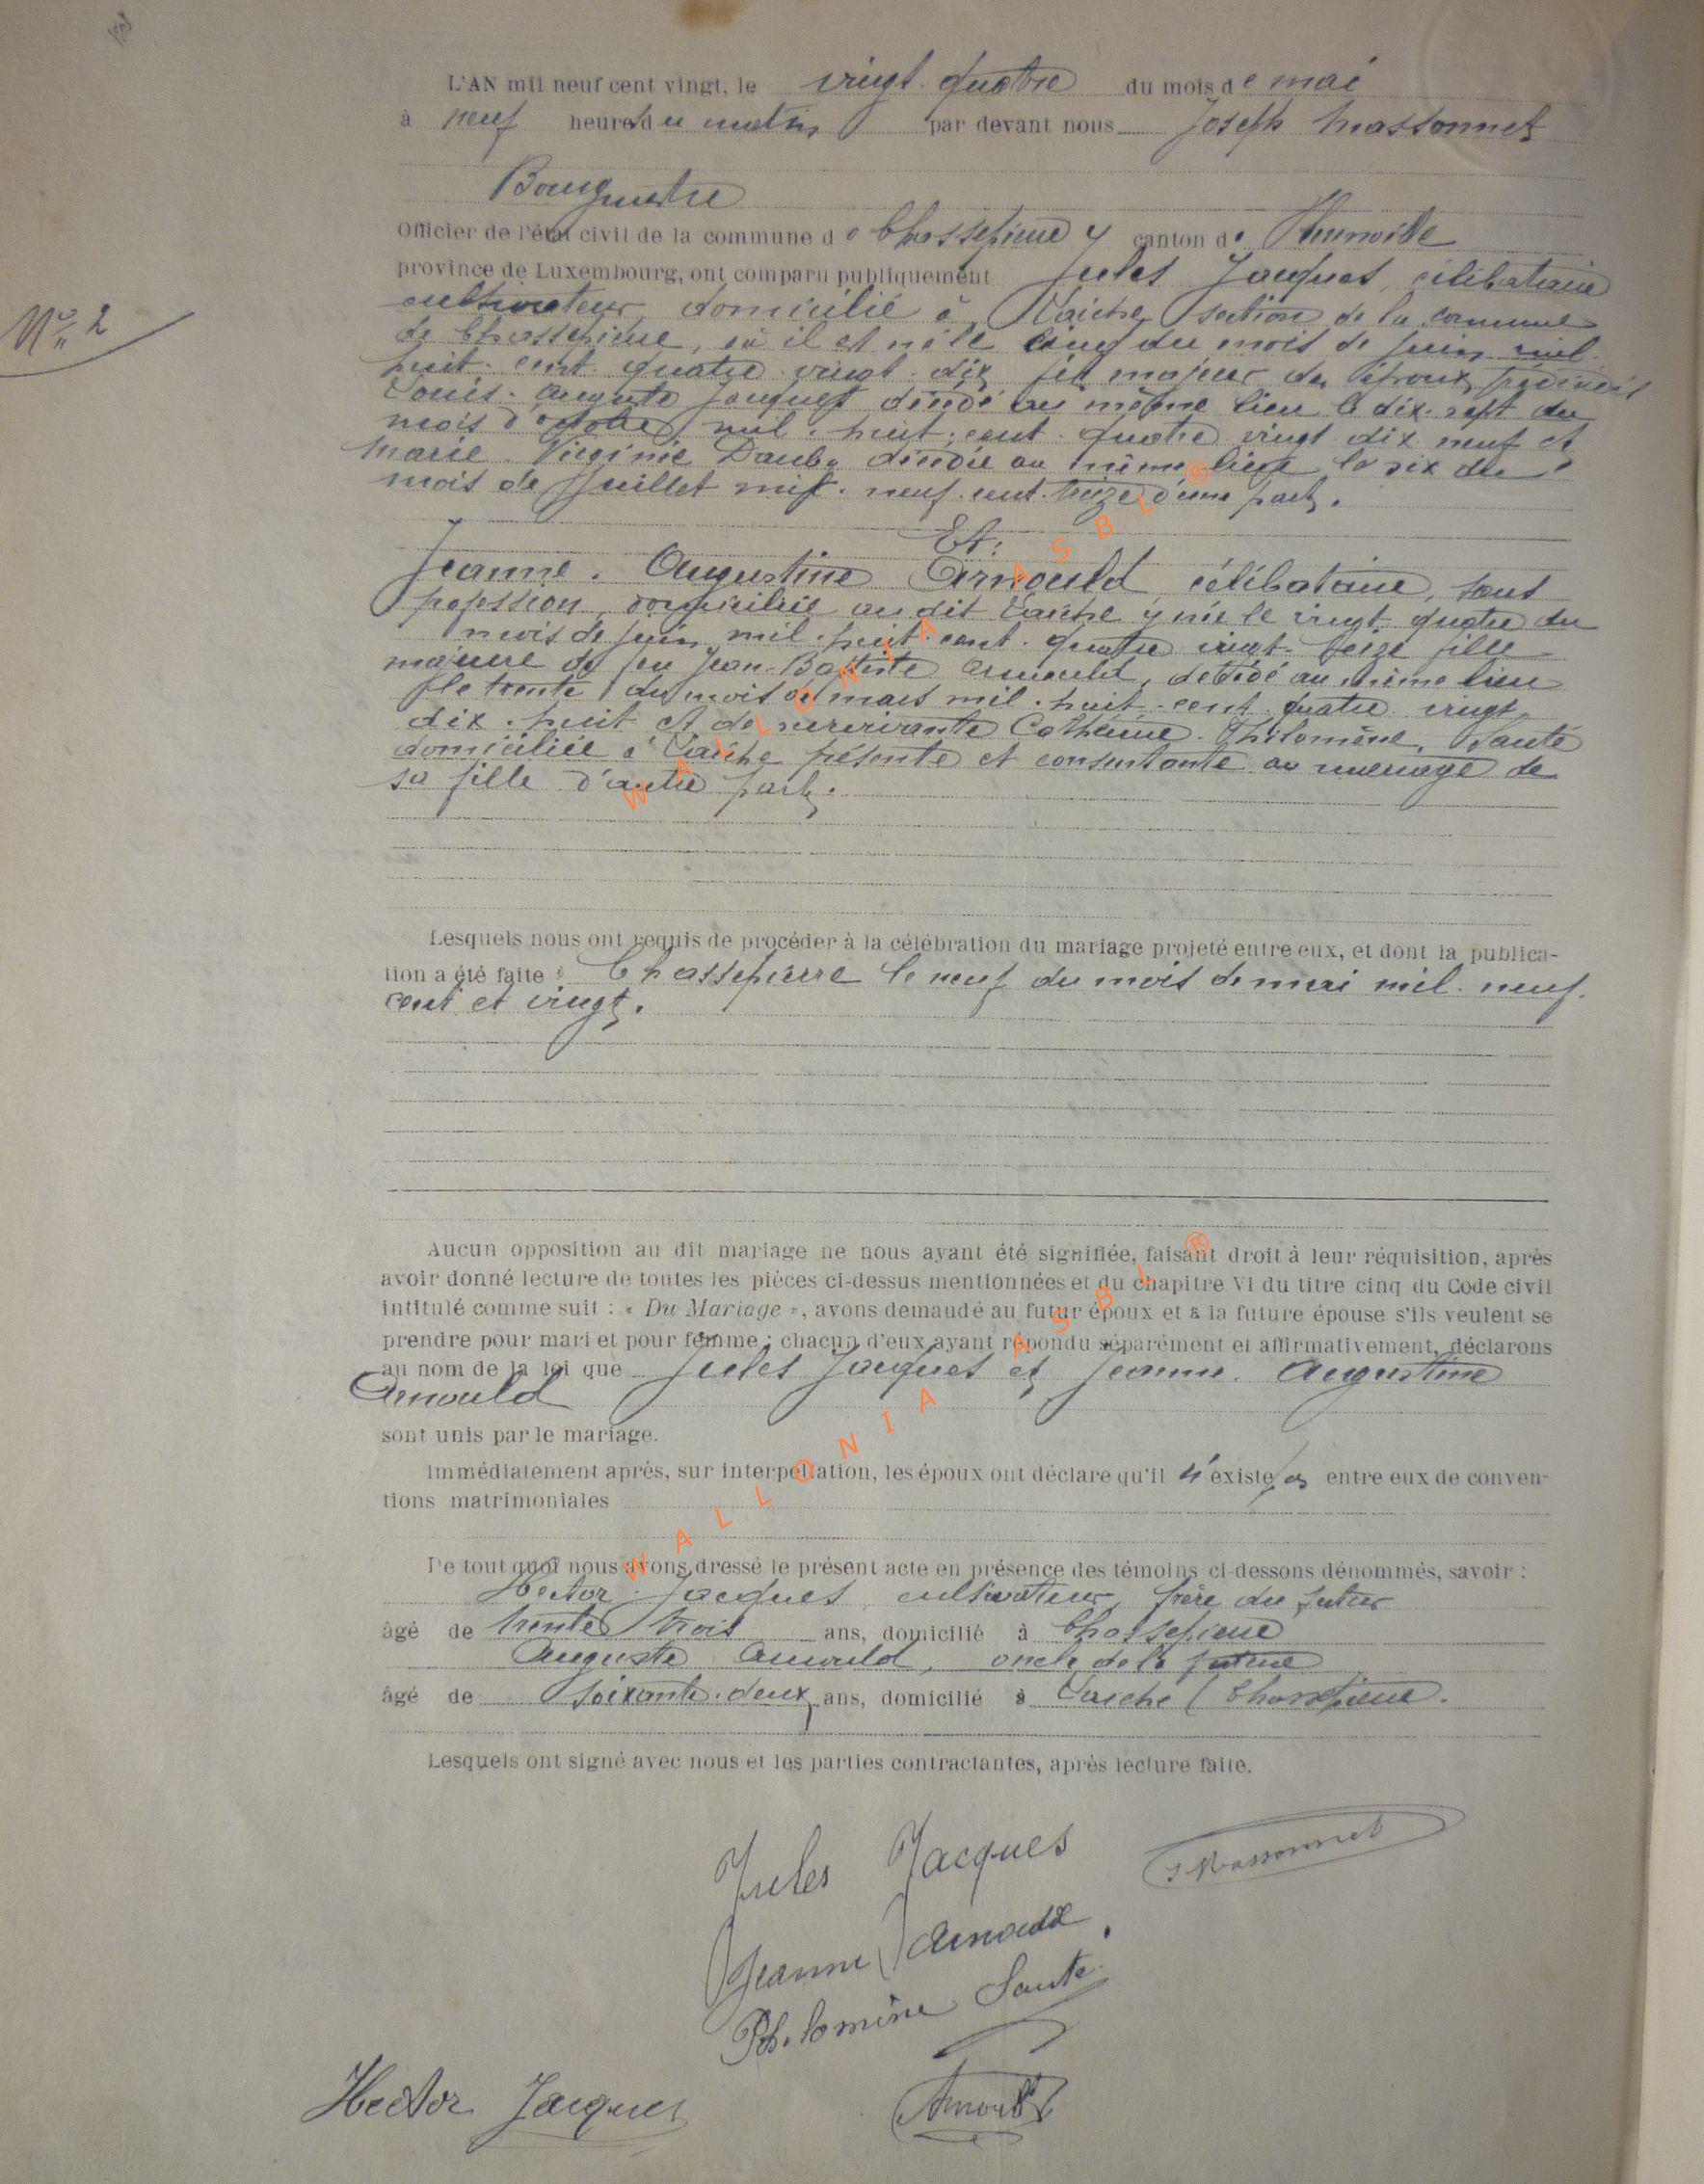 L'AN mil neuf cent vingt, le vingt quatre du mois de mai
à neuf heures du matin par devant nous Joseph Massonnet
Bourgmestre
Officier de l'état civil de la commune de Chassepierre canton de Florenville
province de Luxembourg, ont comparu publiquement Jules Jacques, célibataire
cultivateur, domicilié à Laiche, section de la commune
N° 2
de Chassepierre, où il est né le cinq du mois de juin mil
huit cent quatre vingt dix fils majeur des époux prédécédés
Louis. Auguste Jacques décédé au même lieu le dix sept du
mois d'octobre mil. huit. cent. quatre vingt dix neuf et
Marie. Virginie Dauby décédée au même lieu le six du
mois de Juillet mil. neuf. cent. treize d'une part.
Et:
Jeanne. Augustine Arnould célibataire, sans
profession, domiciliée au dit Laiche y née le vingt quatre du
mois de juin mil. huit. cent. quatre vingt. seize fille
majeure de feu Jean-Baptiste Arnould, décédé au même lieu
le trente du mois de mars mil. huit. cent. quatre vingt
dix. huit et de survivante Cathérine. Philomène. Santé
domiciliée à Laiche présente et consentante au mariage de
sa fille d'autre part.
Lesquels nous ont requis de procéder à la célébration du mariage projeté entre eux, et dont la publica-
tion a été faite à Chassepierre le neuf du mois de mai mil. neuf.
cent et vingt.
Aucun opposition au dit mariage ne nous ayant été signifiée, faisant droit à leur réquisition, après
avoir donné lecture de toutes les pièces ci-dessus mentionnées et du chapitre VI du titre cinq du Code civil
intitulé comme suit : « Du Mariage », avons demandé au futur époux et à la future épouse s'ils veulent se
prendre pour mari et pour femme ; chacun d'eux ayant répondu séparément et affirmativement, déclarons
au nom de la loi que Jules Jacques et Jeanne. Augustine
Arnould
sont unis par le mariage.
Immédiatement après, sur interpellation, les époux ont déclare qu'il n'existe pas entre eux de conven-
tions matrimoniales
De tout quoi nous avons dressé le présent acte en présence des témoins ci-dessons dénommés, savoir :
Hector Jacques, cultivateur, frère du futur
âgé de trente trois ans, domicilié à Chassepierre
Auguste Arnould, oncle de la future
âgé de soixante. deux ans, domicilié à Laiche (Chassepierre.
Lesquels ont signé avec nous et les parties contractantes, après lecture faite.
Jules Jacques
J Massonnet
Jeanne Arnould.
Philomène Santé.
Hector Jacques
Arnould
WALLONIA ASBL ®
WALLONIA ASBL ®